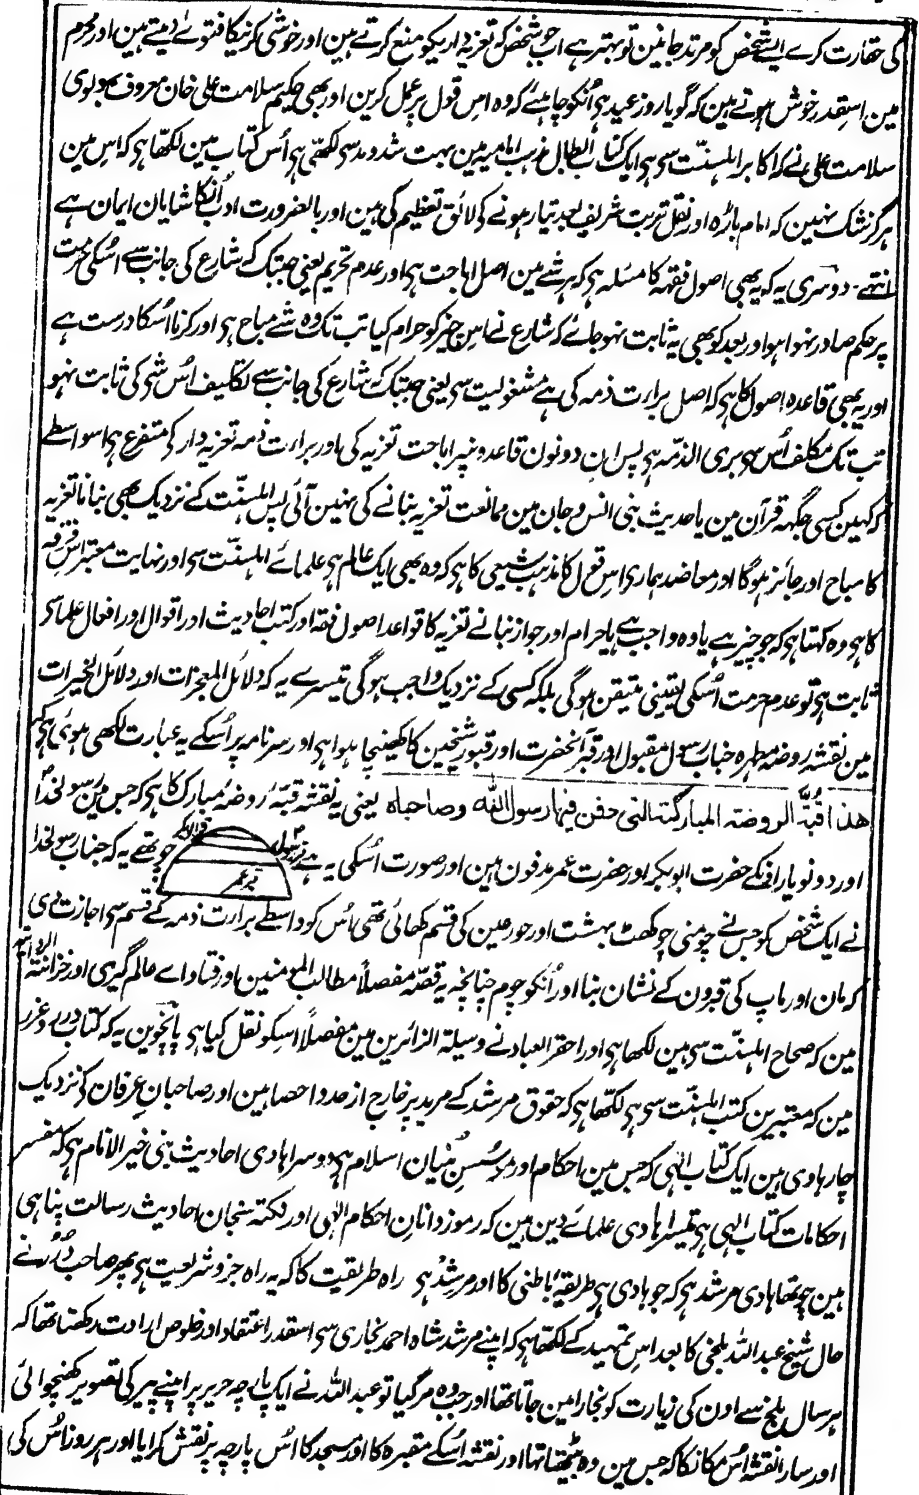 کی حقارت کرے ایسے شخص کو مرتد جانین تو بہتر ہے اب جو شخص کہ تعزیہ داریکو منع کرتے ہین اور خوشی کرنیکا فتوے دیتے ہین اور محرم
مین اسقدر خوش ہوتے ہین کہ گویا روز عید ہی اُنکو چاہیئے کہ وہ اس قول پر عمل کرین اور بھی حکیم سلامت علی خان معروف بمولوی
سلامت علی نے کہ اکابر اہلسنّت سی ہی ایک کتاب ابطال مذہب امامیہ مین بہت شد و مد سی لکھی ہی اُس کتاب مین لکھا ہی کہ اس مین
ہرگز شک نہین کہ امام باڑہ اور نقل تربت شریف بعد تیار ہونے کے لائق تعظیم کی ہین اور بالضرورت ادب اُنکا شایان ایمان ہے
انتہے - دوسری یہ کہ یہ بھی اصول فقہ کا مسئلہ ہی کہ ہر شے مین اصل اباحت ہی اور عدم تحریم یعنی جبتک کہ شارع کی جانب سے اسکی حرمت
پر حکم صادر نہوا ہو اور بعد کو بھی یہ ثابت نہو جائے کہ شارع نے اس چیز کو حرام کیا تب تک وہ شے مباح ہی اور کرنا اُسکا درست ہے
اور یہ بھی قاعدہ اصول کا ہی کہ اصل براءت ذمہ کی ہے مشغولیت سی یعنی جبتک کہ شارع کی جانب سے تکلیف اُس شی کی ثابت نہو
تب تک مکلف اُس سی بری الذمّہ ہی پس اِن دونون قاعدونپر اباحت تعزیہ کی اور براءت ذمہ تعزیہ دار کی متفرع ہی اسواسطے
کہ کہین کسی جگہہ قرآن مین یا حدیث نبی انس و جان مین ممانعت تعزیہ بنانے کی نہین آئی پس اہلسنّت کے نزدیک بھی بنانا تعزیہ
کا مباح اور جائز ہوگا اور معاضد ہماری اس قول کا مذہب شیعی کا ہی کہ وہ بھی ایک عالم ہی علمائے اہلسنّت سی اور نہایت معتبر اس فرقہ
کا ہی وہ کہتا ہی کہ جو چیز ہے یا وہ واجب ہے یا حرام اور جواز بنانے تعزیہ کا قواعد اصول فقہ اور کتب احادیث اور اقوال اور افعال علما سی
ثابت ہی تو عدم حرمت اُسکی یقینی متیقن ہوگی بلکہ کسی کے نزدیک واجب ہوگی تیسرے یہ کہ دلائل المعجزات اور دلائل الخیرات
مین نقشہ روضۂ مطہرہ جناب رسول مقبول اور قبر آنحضرت اور قبور شیخین کا کھینچا ہوا ہی اور سرنامہ پر اُسکے یہ عبارت لکھی ہوئی ہی کہ
ھذا قُبّۃ الروضۃ المبارکۃ التی دفن فیہا رسول اللہ وصاحباہ یعنی یہ نقشہ قبّۂ روضۂ مبارک کا ہی کہ جس مین رسول خدا
اور دونو یار انکے حضرت ابوبکر اور حضرت عمر مدفون ہین اور صورت اُسکی یہ ہے قبر رسول قبر عمر چوتھے یہ کہ جناب رسول خدا
نے ایک شخص کو جس نے چومنی چوکھٹ بہشت اور حور عین کی قسم کھائی تھی اُس کو واسطے برارت ذمہ کے قسم سی اجازت دی
کہ مان اور باپ کی قبرون کے نشان بنا اور اُنکو چوم چنانچہ یہ قصّہ مفصلاً مطالب المومنین اور فتاواے عالم گیری اور خزانتہ
مین کہ صحاح اہلسنّت سی ہین لکھا ہی اور احقر العباد نے وسیلۃ الزائرین مین مفصلاً اسکو نقل کیا ہی پانچوین یہ کہ کتاب درر و غرر
مین کہ معتبرین کتب اہلسنّت سی ہی لکھا ہی کہ حقوق مرشد کے مرید پر خارج از حد و احصا ہین اور صاحبان عرفان کی نزدیک
چار ہادی ہین ایک کتاب الٰہی کہ جس مین احکام اور بنیان اسلام ہی دوسرا ہادی احادیث نبی خیر الانام ہی کہ مفسر
احکامات کتاب الٰہی ہی تیسرا ہادی علمائے دین ہین کہ رموز دانان احکام الٰہی اور نکتہ سنجان احادیث رسالت پناہی
ہین چوتھا ہادی مرشد ہی کہ جو ہادی ہی طریقۂ باطنی کا اور مرشد ہی راہ طریقیت کا کہ یہ راہ جزو شریعیت ہی پھر صاحب دُرَر نے
حال شیخ عبد اللہ بلخی کا بعد اس تمہید کے لکھا ہی کہ اپنے مرشد شاہ احمد بخاری سی اسقدر اعتقاد اور خلوص ارادت رکھتا تھا کہ
ہر سال بلخ سے اون کی زیارت کو بخارا مین جاتا تھا اور جب وہ مر گیا تو عبد اللہ نے ایک پارچہ حریر پر اپنے پیر کی تصویر کھنچوائی
اور سارا نقشہ اُس مکانکا کہ جس مین وہ بیٹھتا تھا اور نقشہ اُسکے مقبرہ کا اور مسجد کا اُس پارچہ پر نقش کرایا اور ہر روز اُس کی